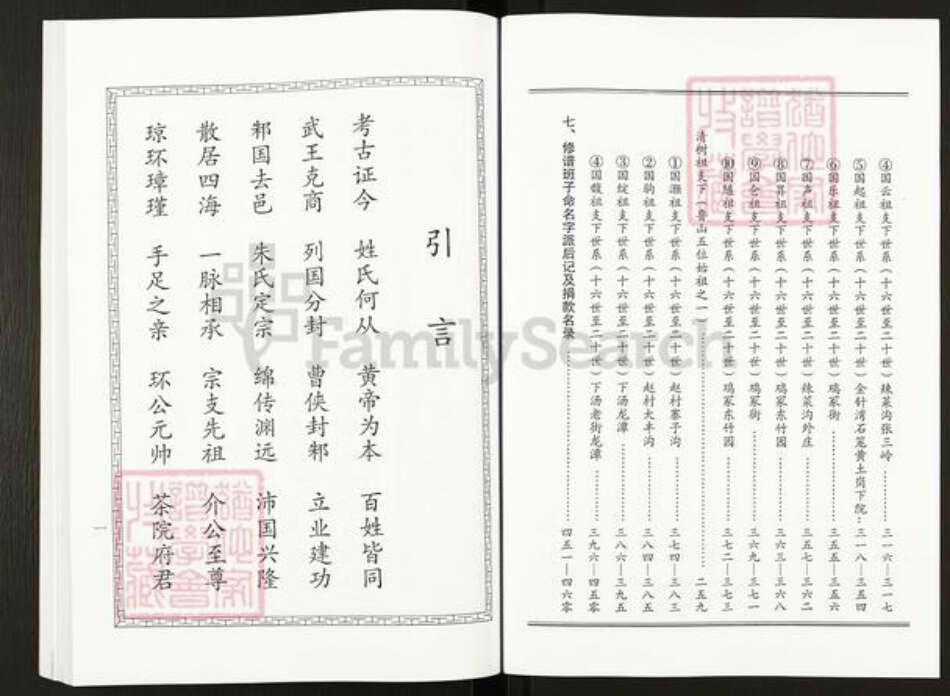 ④国云祖支下世系(十六世至二十世)辣菜沟张三岭…………三一六—三一七
⑤国起祖支下世系(十六世至二十世)金针湾石笼黄土岗下院…三一八—三五四
⑥国乐祖支下世系(十六世至二十世)鸡冢街…………三五五—三五六
⑦国声祖支下世系(十六世至二十世)辣菜沟外庄…………三五七—三六二
⑧国昇祖支下世系(十六世至二十世)鸡冢东竹园…………三六三—三六八
⑨国仑祖支下世系(十六世至二十世)鸡冢街…………三六九—三七一
⑩国随祖支下世系(十六世至二十世)鸡冢东竹园…………三七二—三七三
清树祖支下(鲁山五位始祖之一)…………二五九
①国灏祖支下世系(十六世至二十世)赵村寨子沟…………三七四—三八三
②国驹祖支下世系(十六世至二十世)赵村大丰沟…………三八四—三八五
③国绽祖支下世系(十六世至二十世)下汤龙潭…………三八六—三九五
④国馥祖支下世系(十六世至二十世)下汤老街龙潭…………三九六—四五零
七、修谱班子命名字派后记及捐款名录…………四五一—四六零
引言
考古证今 姓氏何从 黄帝为本 百姓皆同
武王克商 列国分封 曹侠封邾 立业建功
邾国去邑 朱氏定宗 绵传渊远 沛国兴隆
散居四海 一脉相承 宗支先祖 介公至尊
琼环璋瑾 手足之亲 环公元帅 茶院府君
一
FamilySearch